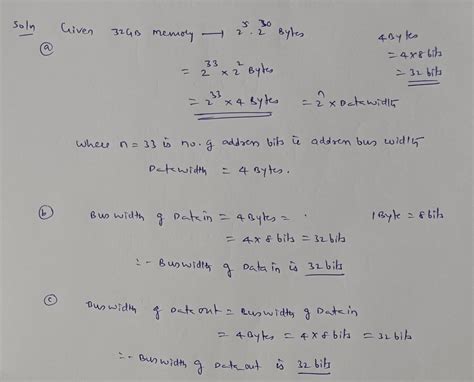 Soln Given 32GB memory → 2⁵·2³⁰ Bytes
(a)
= 2³³ × 2² Bytes
= 2³³ × 4 Bytes = 2ⁿ × Datawidth
4Bytes
= 4×8 bits
= 32 bits
where n = 33 is no. of address bits ie address bus width
Datawidth = 4 Bytes.
(b) Bus width of Data in = 4Bytes = . 1 Byte = 8 bits
= 4×8 bits = 32 bits
∴- Buswidth of Data in is 32 bits
(c) Bus width of Data out = Bus width of Data in
= 4Bytes = 4×8 bits = 32 bits
∴- Bus width of Data_out is 32 bits